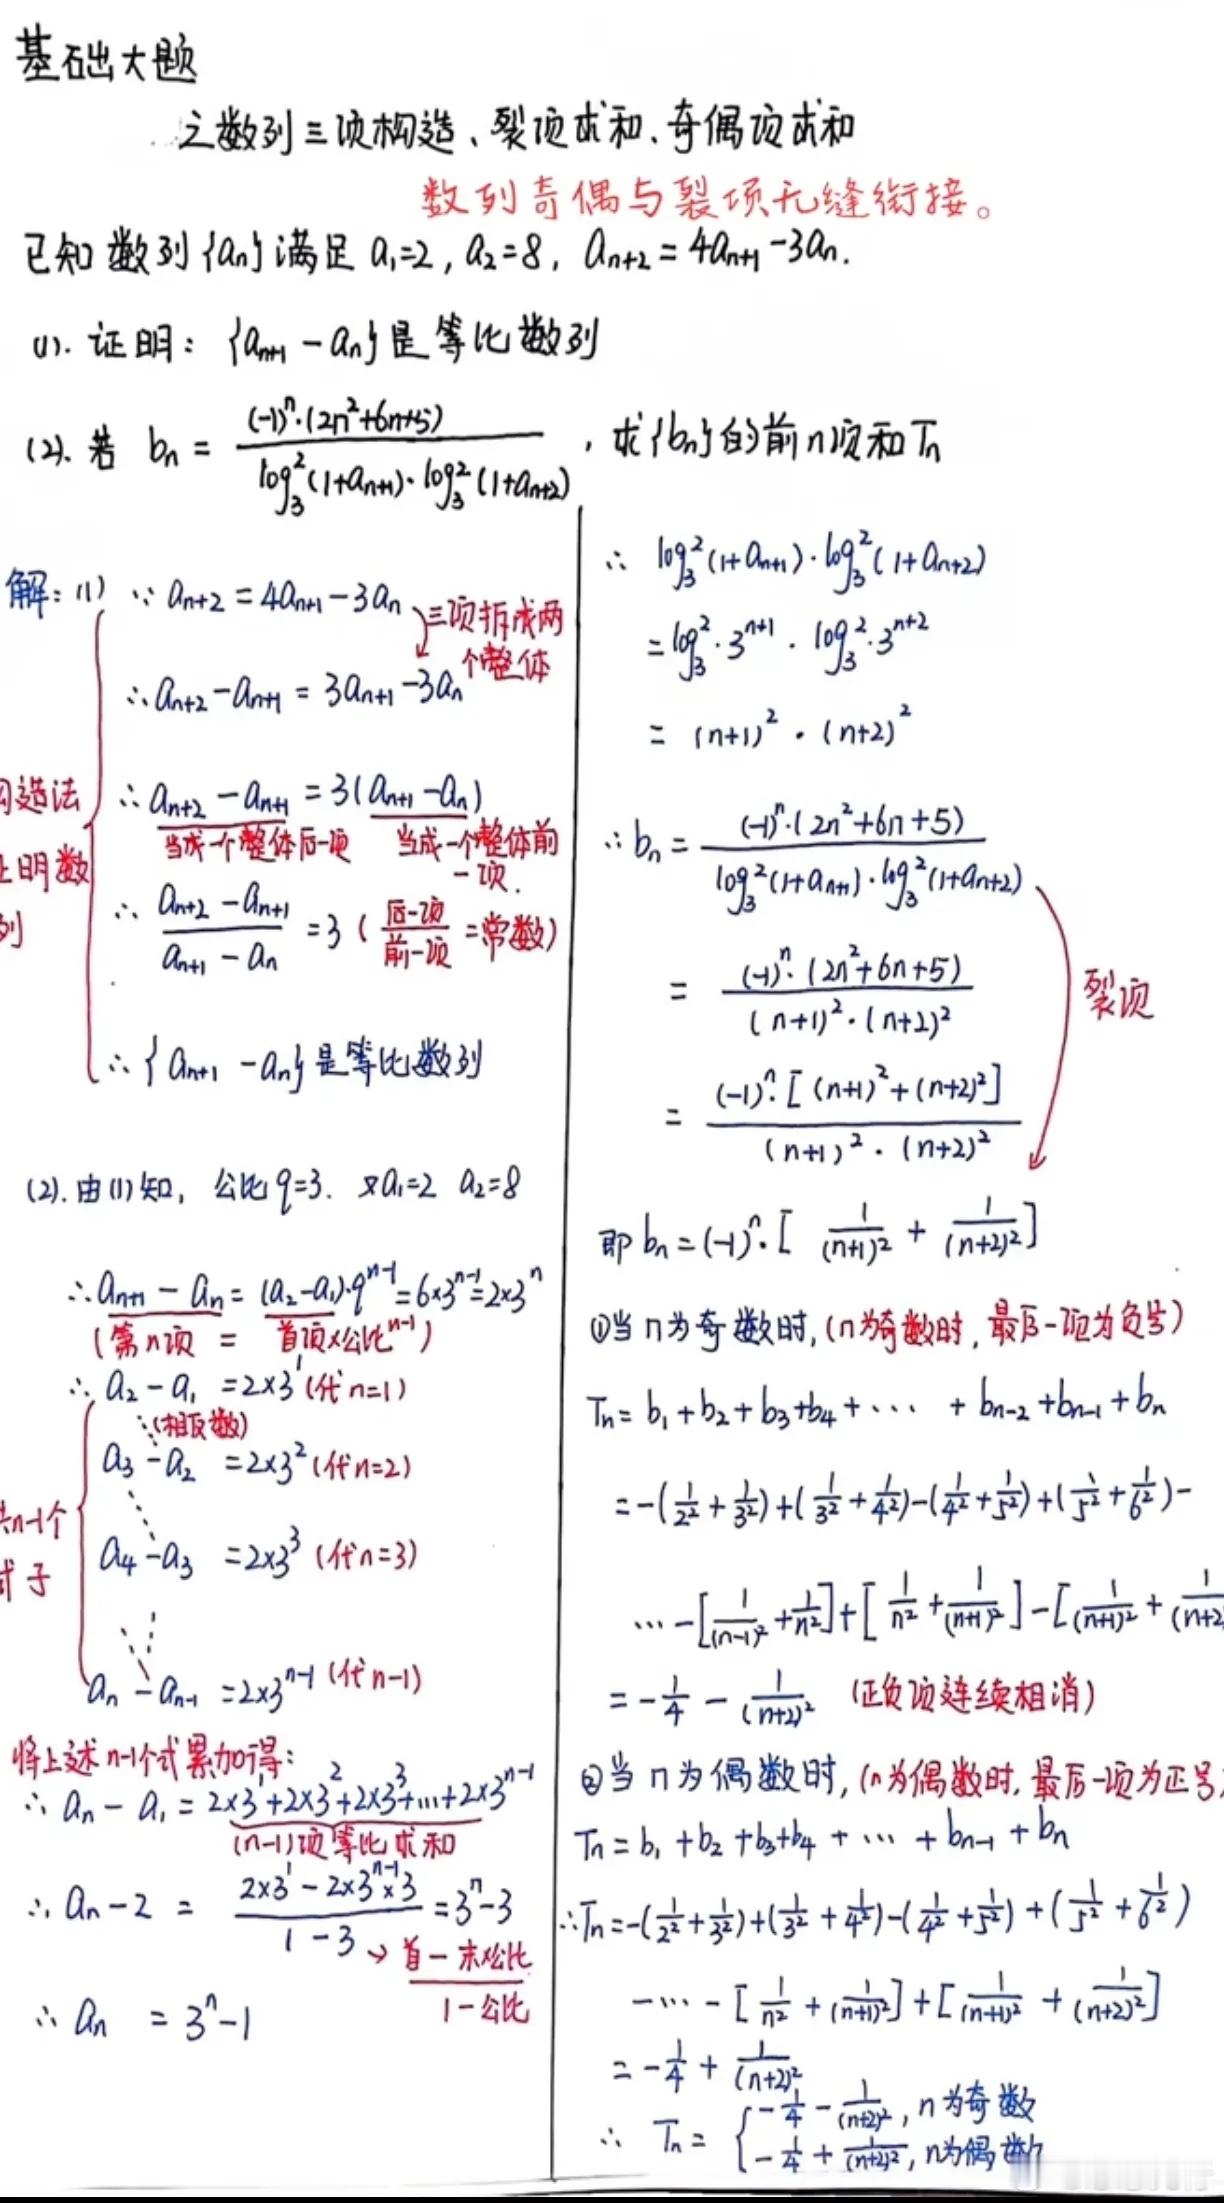 基础大题
之数列三项构造、裂项求和、奇偶项求和
数列奇偶与裂项无缝衔接。
已知数列{aₙ}满足 a₁=2, a₂=8, aₙ₊₂=4aₙ₊₁-3aₙ.
(1). 证明: {aₙ₊₁-aₙ}是等比数列
(2). 若 bₙ = (-1)ⁿ·(2n²+6n+5) / log₃²(1+aₙ₊₁)·log₃²(1+aₙ₊₂), 求{bₙ}的前n项和Tₙ
解: (1) ∵ aₙ₊₂=4aₙ₊₁-3aₙ
三项拆成两
个整体
∴ aₙ₊₂-aₙ₊₁ = 3aₙ₊₁-3aₙ
∴ aₙ₊₂-aₙ₊₁ = 3(aₙ₊₁-aₙ)
当成一个整体后一项 当成一个整体前
一项.
造法
明数
列
∴ (aₙ₊₂-aₙ₊₁)/(aₙ₊₁-aₙ) = 3 (后一项/前一项 =常数)
∴ {aₙ₊₁-aₙ}是等比数列
(2). 由(1)知, 公比q=3. 又a₁=2 a₂=8
∴ aₙ₊₁-aₙ = (a₂-a₁)·qⁿ⁻¹=6×3ⁿ⁻¹=2×3ⁿ
(第n项 = 首项×公比ⁿ⁻¹)
∴ a₂-a₁ =2×3¹(代n=1)
(相反数)
a₃-a₂ =2×3²(代n=2)
n-1个
式子
a₄-a₃ =2×3³ (代n=3)
aₙ-aₙ₋₁ =2×3ⁿ⁻¹ (代n-1)
将上述n-1个式累加得:
∴ aₙ-a₁ = 2×3¹+2×3²+2×3³+…+2×3ⁿ⁻¹
(n-1)项等比求和
∴ aₙ-2 = (2×3¹-2×3ⁿ⁻¹×3)/(1-3) =3ⁿ-3
→ 首-末×公比/1-公比
∴ aₙ = 3ⁿ-1
∴ log₃²(1+aₙ₊₁)·log₃²(1+aₙ₊₂)
= log₃²·3ⁿ⁺¹·log₃²·3ⁿ⁺²
= (n+1)²·(n+2)²
∴ bₙ = (-1)ⁿ·(2n²+6n+5) / log₃²(1+aₙ₊₁)·log₃²(1+aₙ₊₂)
= (-1)ⁿ·(2n²+6n+5) / (n+1)²·(n+2)²
裂项
= (-1)ⁿ·[(n+1)²+(n+2)²] / (n+1)²·(n+2)²
即 bₙ=(-1)ⁿ·[1/(n+1)² + 1/(n+2)²]
①当n为奇数时,(n为奇数时, 最后一项为负号)
Tₙ= b₁+b₂+b₃+b₄+… +bₙ₋₂+bₙ₋₁+bₙ
=-(1/2²+1/3²)+(1/3²+1/4²)-(1/4²+1/5²)+(1/5²+1/6²)-
…-[1/(n-1)²+1/n²]+[1/n²+1/(n+1)²]-[1/(n+1)²+1/(n+2
=-1/4-1/(n+2)² (正负项连续相消)
②当n为偶数时,(n为偶数时, 最后一项为正号
Tₙ= b₁+b₂+b₃+b₄+…+bₙ₋₁+bₙ
∴Tₙ=-(1/2²+1/3²)+(1/3²+1/4²)-(1/4²+1/5²)+(1/5²+1/6²)
-…-[1/n²+1/(n+1)²]+[1/(n+1)²+1/(n+2)²]
=-1/4+1/(n+2)²
∴ Tₙ= { -1/4-1/(n+2)², n为奇数
-1/4+1/(n+2)², n为偶数